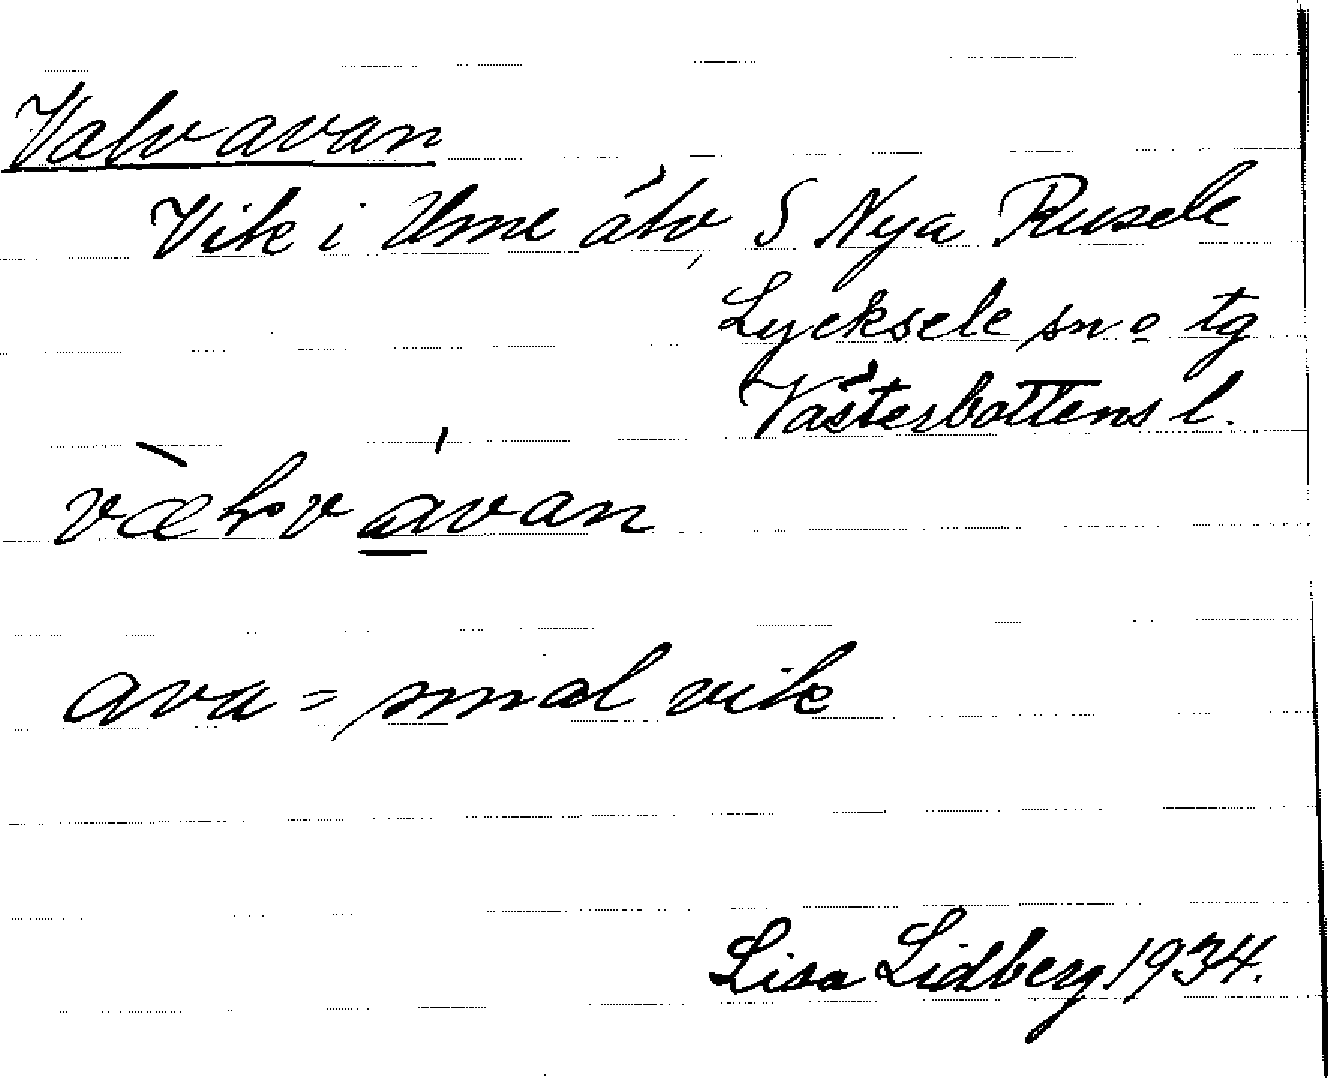 Valvavan
Vik i Ume älv, S Nya Rusele
Lycksele sn o tg
Västerbottens l.
ava = smal vik
Lisa Lidberg 1934.